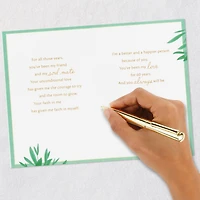 For all these years,
you've been my friend
and my soul mate.
Your unconditional love
has given me the courage to try
and the room to grow.
Your faith in me
has given me faith in myself.
I'm a better and a happier person
because of you.
You've been my love
for all years.
And you always will be.